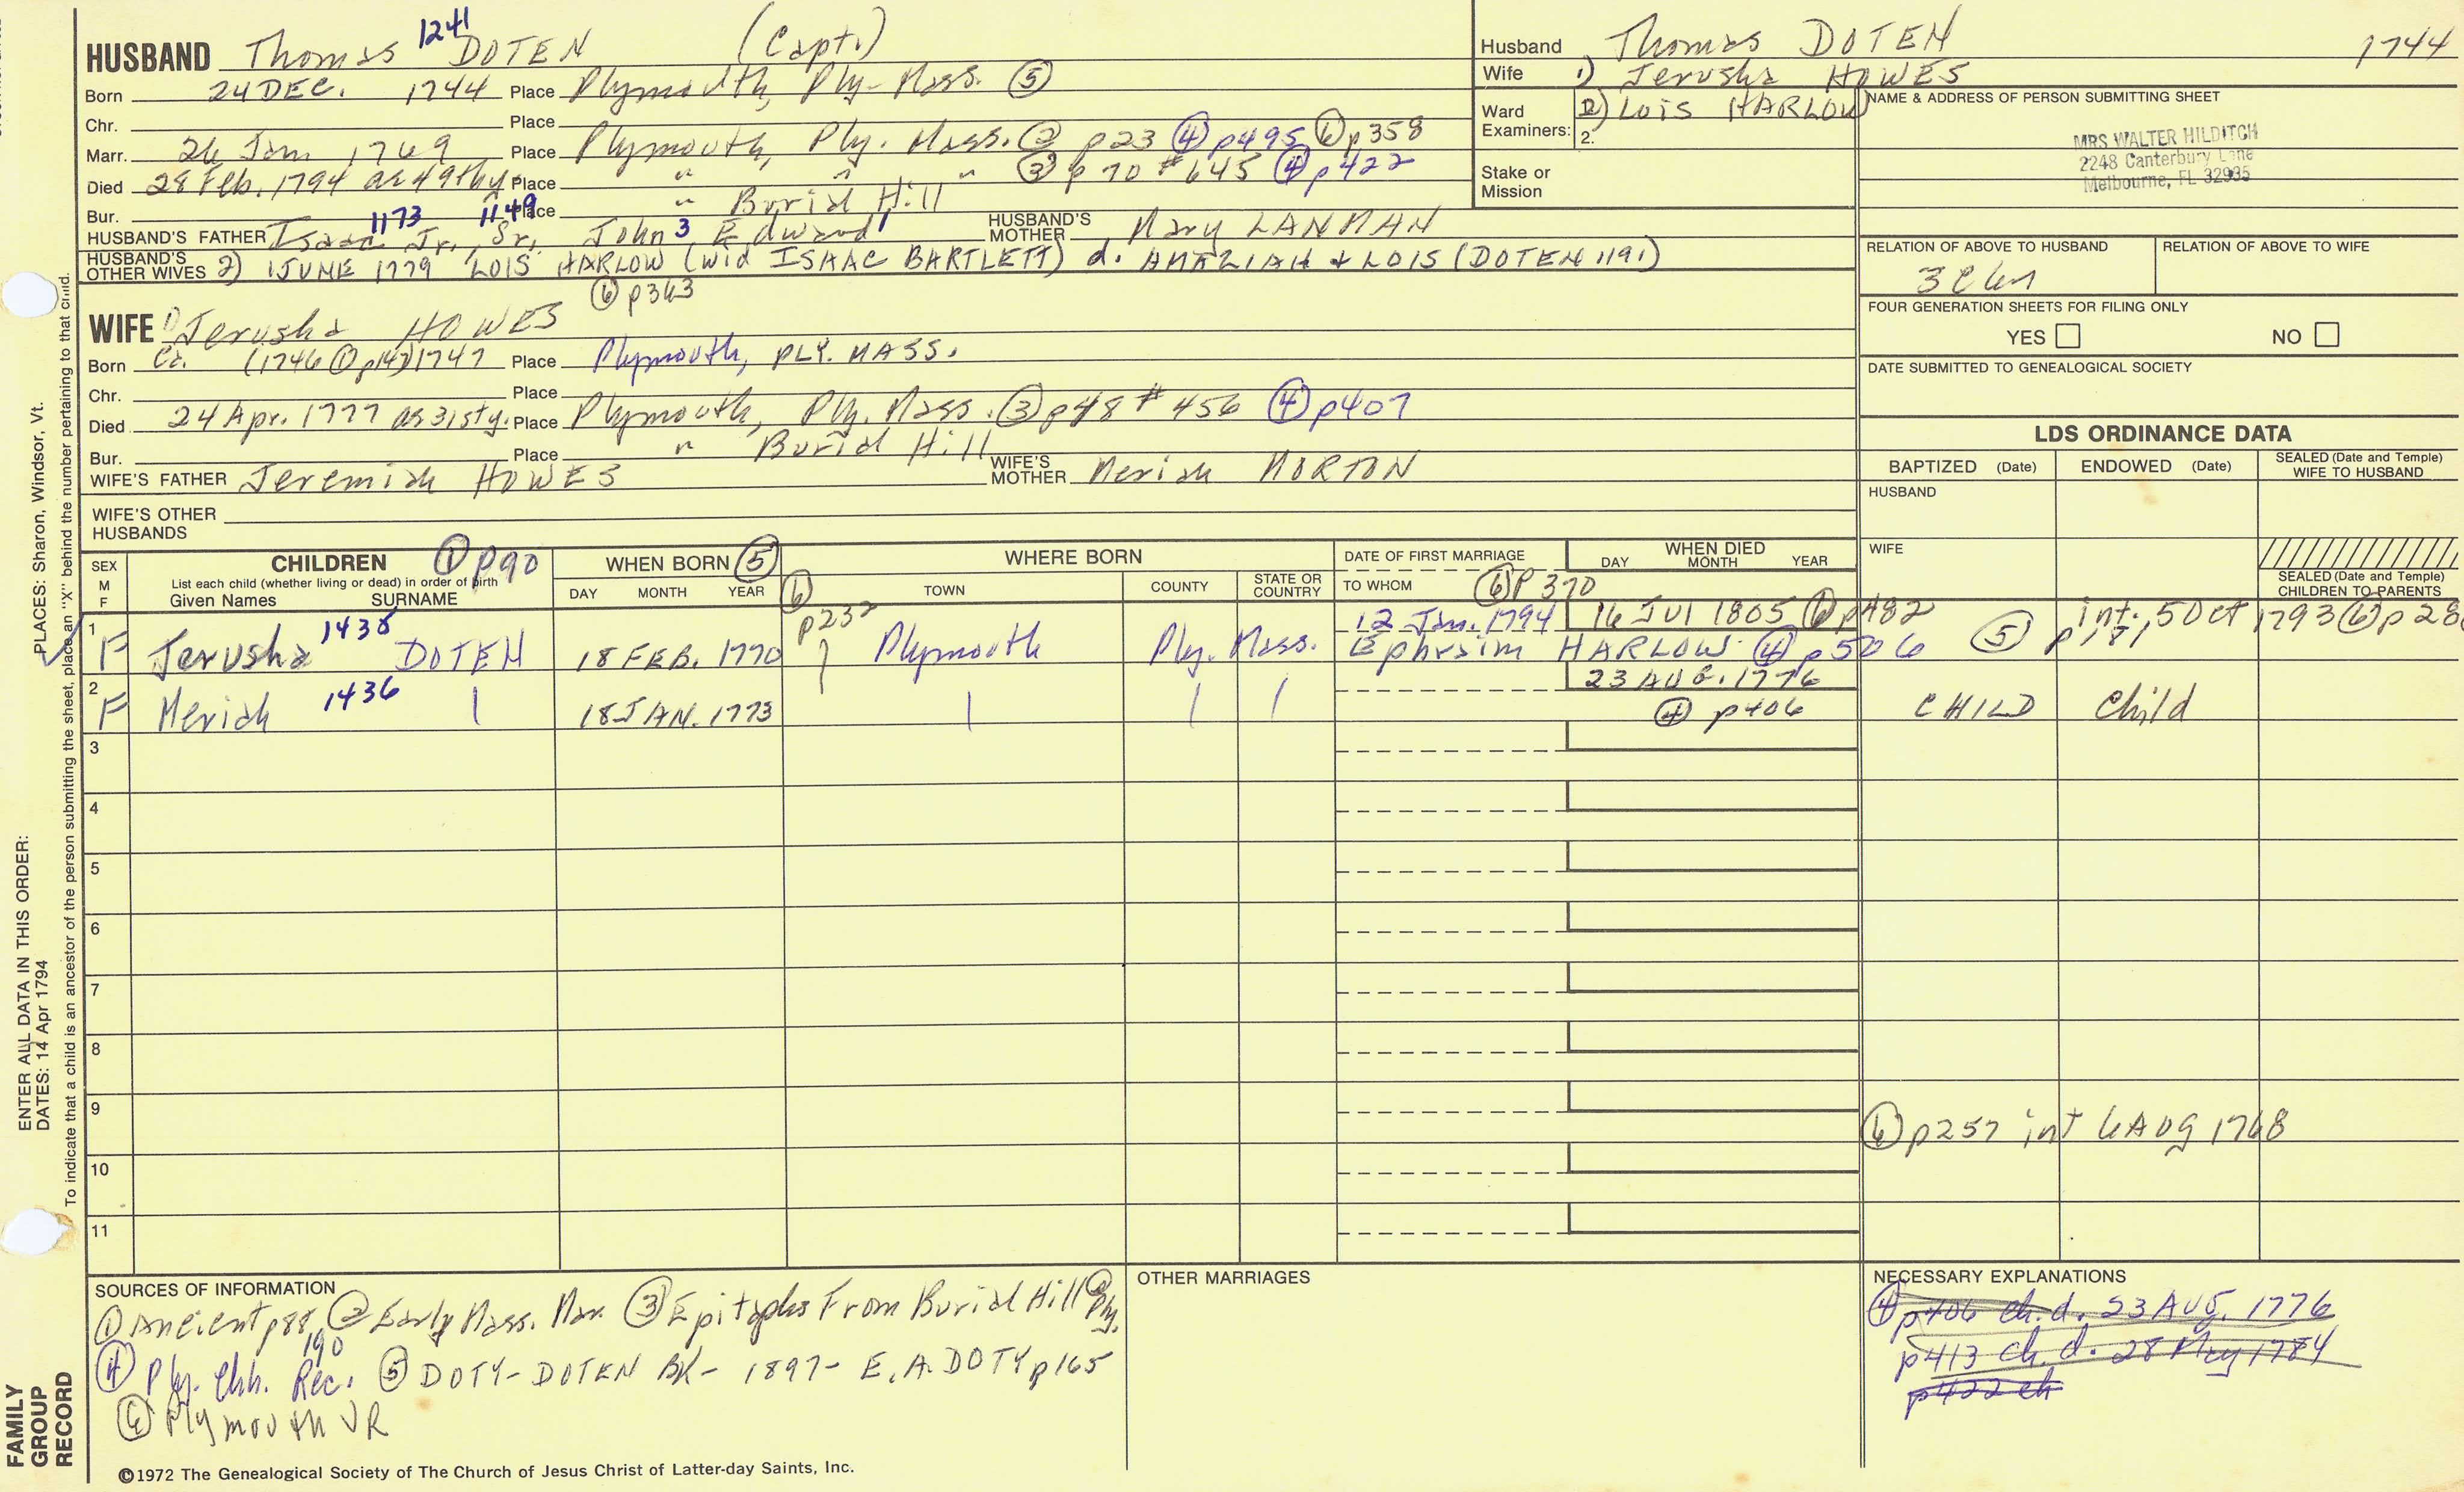 HUSBAND Thomas 1241 DOTEN (Capt.)
Born 24 DEC. 1744 Place Plymouth, Ply- Mass. ⑤
Chr. Place
Marr. 26 Jan 1769 Place Plymouth, Ply. Mass. ② p23 ④ p495 ⑥ p358
Died 28 Feb. 1794 ae 49thy Place " " " ③ p 70 # 645 ④ p422
Bur. Place " Burial Hill
HUSBAND'S FATHER Isaac 1173 Jr., 1149 Sr., John 3 Edward 1 HUSBAND'S MOTHER Mary LANMAN
HUSBAND'S OTHER WIVES 2) 1 JUNE 1779 LOIS HARLOW (wid ISAAC BARTLETT) d. AMAZIAH & LOIS (DOTEN 1191)
⑥ p363
WIFE 1) Jerusha HOWES
Born Ca. (1746 ① p147) 1747 Place Plymouth, PLY. MASS.
Chr. Place
Died 24 Apr. 1777 ae 31sty. Place Plymouth, Ply. Mass. ③ p48 # 456 ④ p407
Bur. Place " Burial Hill
WIFE'S FATHER Jeremiah HOWES WIFE'S MOTHER Meriah MORTON
WIFE'S OTHER HUSBANDS
Husband Thomas DOTEN 1744
Wife 1) Jerusha HOWES
Ward Examiners: 1. 2) LOIS HARLOW
2.
Stake or Mission
NAME & ADDRESS OF PERSON SUBMITTING SHEET
MRS WALTER HILDITCH
2248 Canterbury Lane
Melbourne, FL 32935
RELATION OF ABOVE TO HUSBAND RELATION OF ABOVE TO WIFE
FOUR GENERATION SHEETS FOR FILING ONLY
YES NO
DATE SUBMITTED TO GENEALOGICAL SOCIETY
LDS ORDINANCE DATA
BAPTIZED (Date) ENDOWED (Date) SEALED (Date and Temple) WIFE TO HUSBAND
HUSBAND
WIFE
SEALED (Date and Temple) CHILDREN TO PARENTS
SEX M F CHILDREN ① p90 WHEN BORN ⑤ WHERE BORN DATE OF FIRST MARRIAGE WHEN DIED
List each child (whether living or dead) in order of birth
Given Names SURNAME DAY MONTH YEAR ⑥ p232 TOWN COUNTY STATE OR COUNTRY TO WHOM ⑥ P 370 DAY MONTH YEAR
1 12 Jan. 1794 16 JUl 1805 ⑥ p482 int. 5 Oct 1793 ⑥ p28
F Jerusha 1435 DOTEN 18 FEB. 1770 Plymouth Ply. Mass. Ephraim HARLOW ④ p506 ⑤ p171
2 23 AUG. 1776
F Meriah 1436 18 JAN. 1773 ④ p406 CHILD Child
3
4
5
6
7
8
9
⑥ p257 int 6 AUg 1768
10
11
SOURCES OF INFORMATION
① Ancient p88, 190 ② Early Mass. Mar. ③ Epitaphs From Burial Hill @ Ply.
④ Ply. Chh. Rec. ⑤ DOTY-DOTEN BK- 1897- E. A. DOTY p165
⑥ Plymouth VR
OTHER MARRIAGES
NECESSARY EXPLANATIONS
④ p406 ch. d. 23 AUG. 1776
p413 ch. d. 28 May 1784
p422 ch
©1972 The Genealogical Society of The Church of Jesus Christ of Latter-day Saints, Inc.
FAMILY GROUP RECORD
ENTER ALL DATA IN THIS ORDER:
DATES: 14 Apr 1794 PLACES: Sharon, Windsor, Vt.
To indicate that a child is an ancestor of the person submitting the sheet, place an "X" behind the number pertaining to that child.